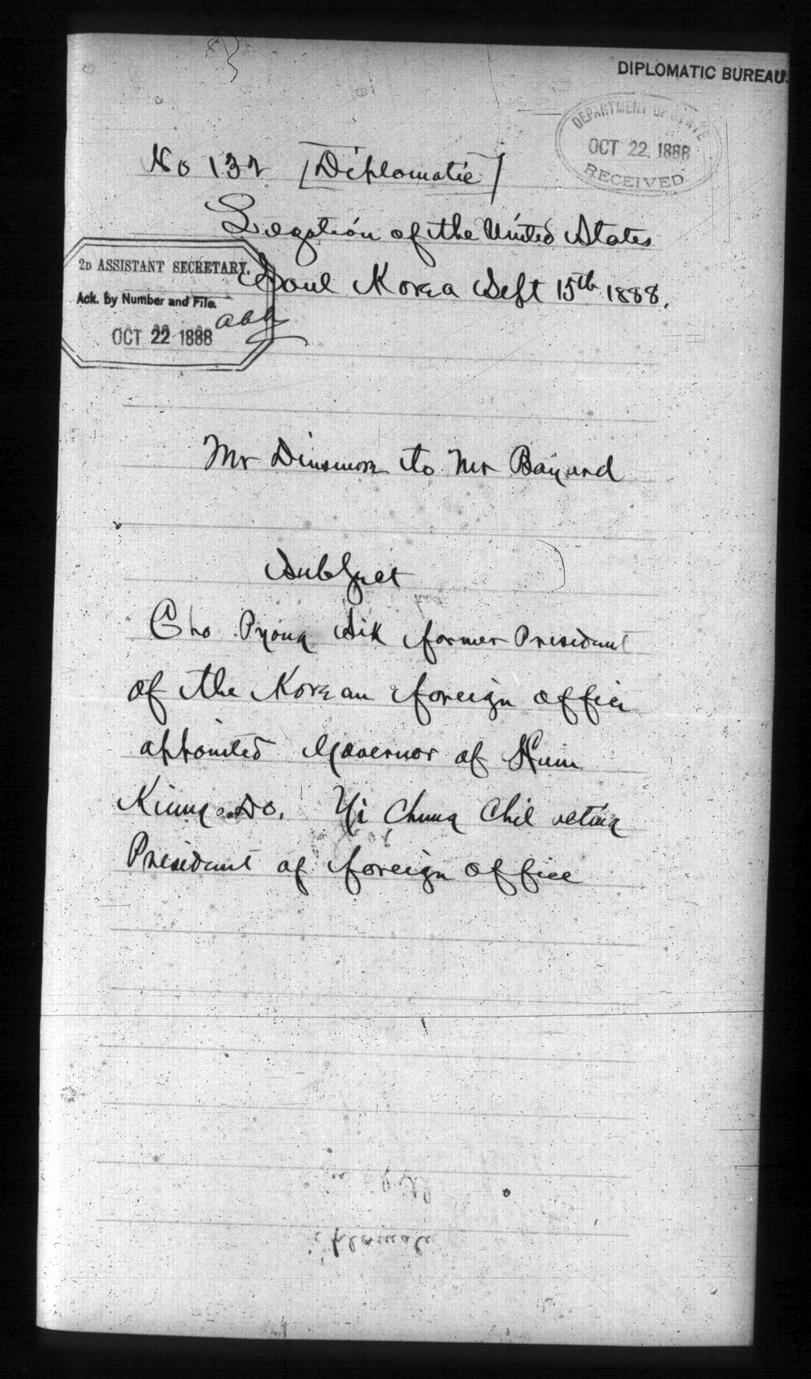 DIPLOMATIC BUREAU.
DEPARTMENT OF STATE
OCT 22 1888
RECEIVED
No 132 [Diplomatic]
Legation of the United States
Soul Korea Sept 15th 1888.
2D ASSISTANT SECRETARY.
Ack. by Number and File.
OCT 22 1888
Mr Dinsmore to Mr Bayard
Subject
Cho Pyong Sik former President
of the Korean foreign office
appointed Governor of Ham
Kiung Do. Yi Chung Chil acting
President of foreign office